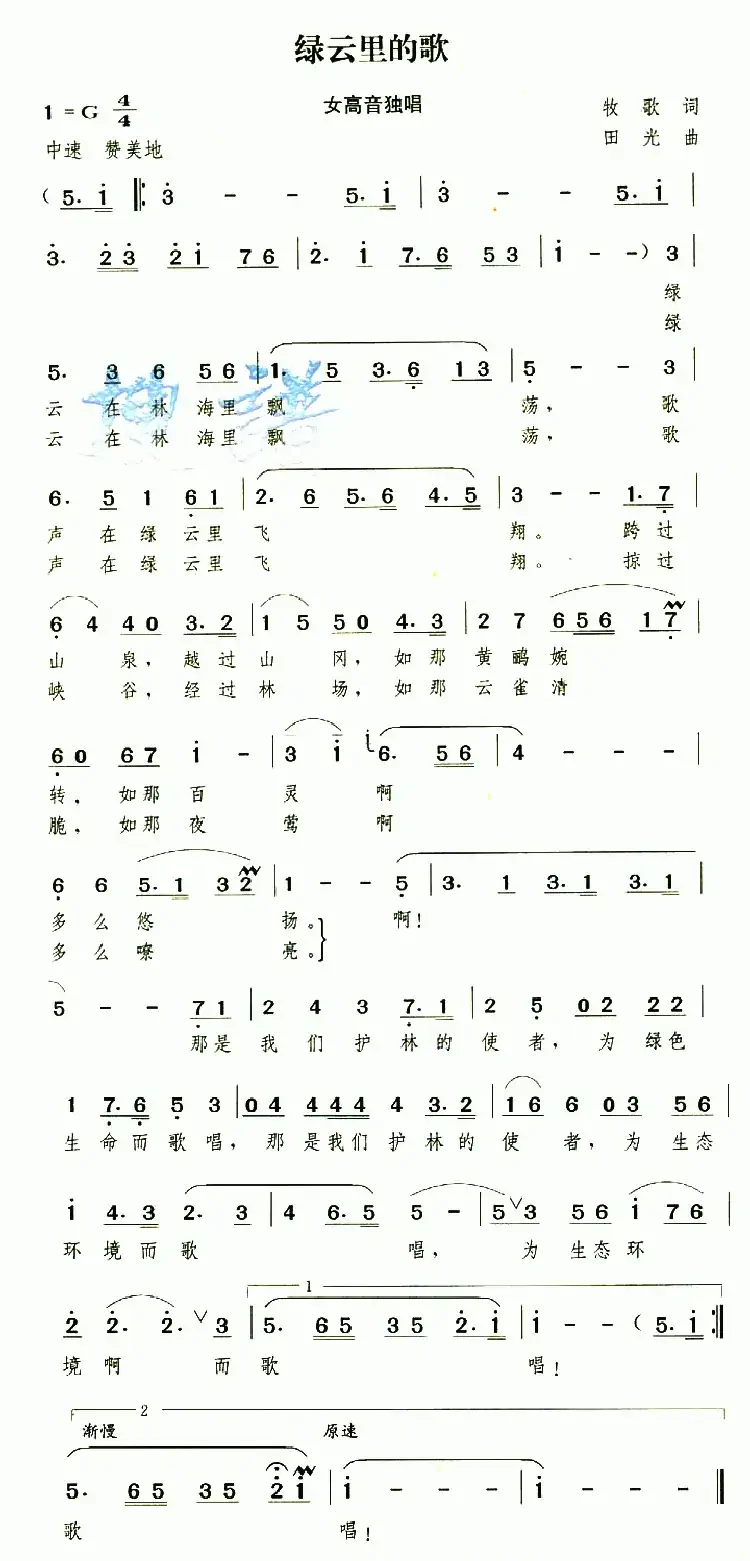 绿云里的歌
1 = G 4/4 女高音独唱 牧歌 词
中速 赞美地 田光 曲
( 5. i ‖: 3 - - 5. i | 3 - - 5. i |
3. 2 3 2 i 7 6 | 2. i 7. 6 5 3 | i - - ) 3 |
绿
绿
5. 3 6 5 6 | 1. 5 3. 6 1 3 | 5 - - 3 |
云 在 林 海 里 飘 荡, 歌
云 在 林 海 里 飘 荡, 歌
6. 5 1 6 1 | 2. 6 5. 6 4. 5 | 3 - - 1. 7 |
声 在 绿 云 里 飞 翔。 跨 过
声 在 绿 云 里 飞 翔。 掠 过
6 4 4 0 3. 2 | 1 5 5 0 4. 3 | 2 7 6 5 6 1 7 |
山 泉, 越 过 山 冈, 如 那 黄 鹂 婉
峡 谷, 经 过 林 场, 如 那 云 雀 清
6 0 6 7 i - | 3 i i 6. 5 6 | 4 - - - |
转, 如 那 百 灵 啊
脆, 如 那 夜 莺 啊
6 6 5. 1 3 2 | 1 - - 5 | 3. 1 3. 1 3. 1 |
多 么 悠 扬。 啊!
多 么 嘹 亮。
5 - - 7 1 | 2 4 3 7. 1 | 2 5 0 2 2 2 |
那 是 我 们 护 林 的 使 者, 为 绿 色
1 7. 6 5 3 | 0 4 4 4 4 4 3. 2 | 1 6 6 0 3 5 6 |
生 命 而 歌 唱, 那 是 我 们 护 林 的 使 者, 为 生 态
i 4. 3 2. 3 | 4 6. 5 5 - | 5 ∨ 3 5 6 i 7 6 |
环 境 而 歌 唱, 为 生 态 环
1
2 2. 2. ∨ 3 | 5. 6 5 3 5 2. i | i - - ( 5. i :‖
境 啊 而 歌 唱!
2
渐慢 原速
5. 6 5 3 5 2 i | i - - - | i - - - ‖
歌 唱!